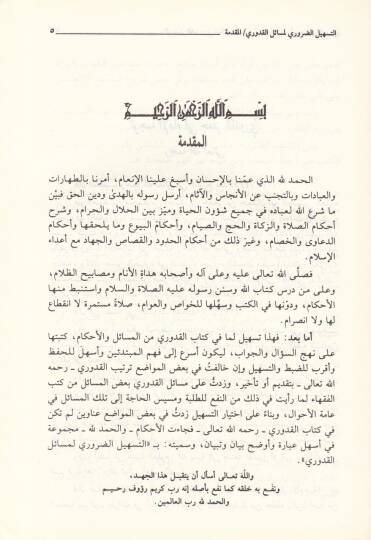 التسهيل الضروري لمسائل القدوري/المقدمة ٥
بسم الله الرحمن الرحيم
المقدمة
الحمد لله الذي عمّنا بالإحسان وأسبغ علينا الإنعام، أمرنا بالطهارات
والعبادات وبالتجنب عن الأنجاس والآثام، أرسل رسوله بالهدىٰ ودين الحق فبيَّن
ما شرع الله لعباده في جميع شؤون الحياة وميّز بين الحلال والحرام، وشرح
أحكام الصلاة والزكاة والحج والصيام، وأحكامَ البيوع وما يلحقها وأحكام
الدعاوى والخصام، وغيرَ ذلك من أحكام الحدود والقصاص والجهاد مع أعداء
الإسلام.
فصلَّى الله تعالى عليه وعلى آله وأصحابه هداةِ الأنام ومصابيح الظلام،
وعلى من درس كتاب الله وسنن رسوله عليه الصلاة والسلام واستنبط منها
الأحكام، ودوّنها في الكتب وسهَّلها للخواص والعوام، صلاةً مستمرة لا انقطاع
لها ولا انصرام.
أما بعد: فهذا تسهيل لما في كتاب القدوري من المسائل والأحكام، كتبتها
على نهج السؤال والجواب، ليكون أسرع إلى فهم المبتدئين وأسهلَ للحفظ
وأقربَ للضبط والتسهيل وإن خالفتُ في بعض المواضع ترتيب القدوري ـ رحمه
الله تعالى ـ بتقديم أو تأخير، وزدتُ على مسائل القدوري بعض المسائل من كتب
الفقهاء لما رأيت في ذلك من النفع للطلبة ومسيس الحاجة إلى تلك المسائل في
عامة الأحوال، وبناءً على اختيار التسهيل زدتُ في بعض المواضع عناوين لم تكن
في كتاب القدوري ـ رحمه الله تعالى ـ فجاءت الأحكام ـ والحمد لله ـ مجموعة
في أسهل عبارة وأوضح بيان وتبيان، وسميته: بـ «التسهيل الضروري لمسائل
القدوري».
واللّه تعالى أسأل أن يتقبل هذا الجهد،
ونفع به خلقه كما نفع بأصله إنه رب كريم رؤوف رحيم
والحمد لله رب العالمين.